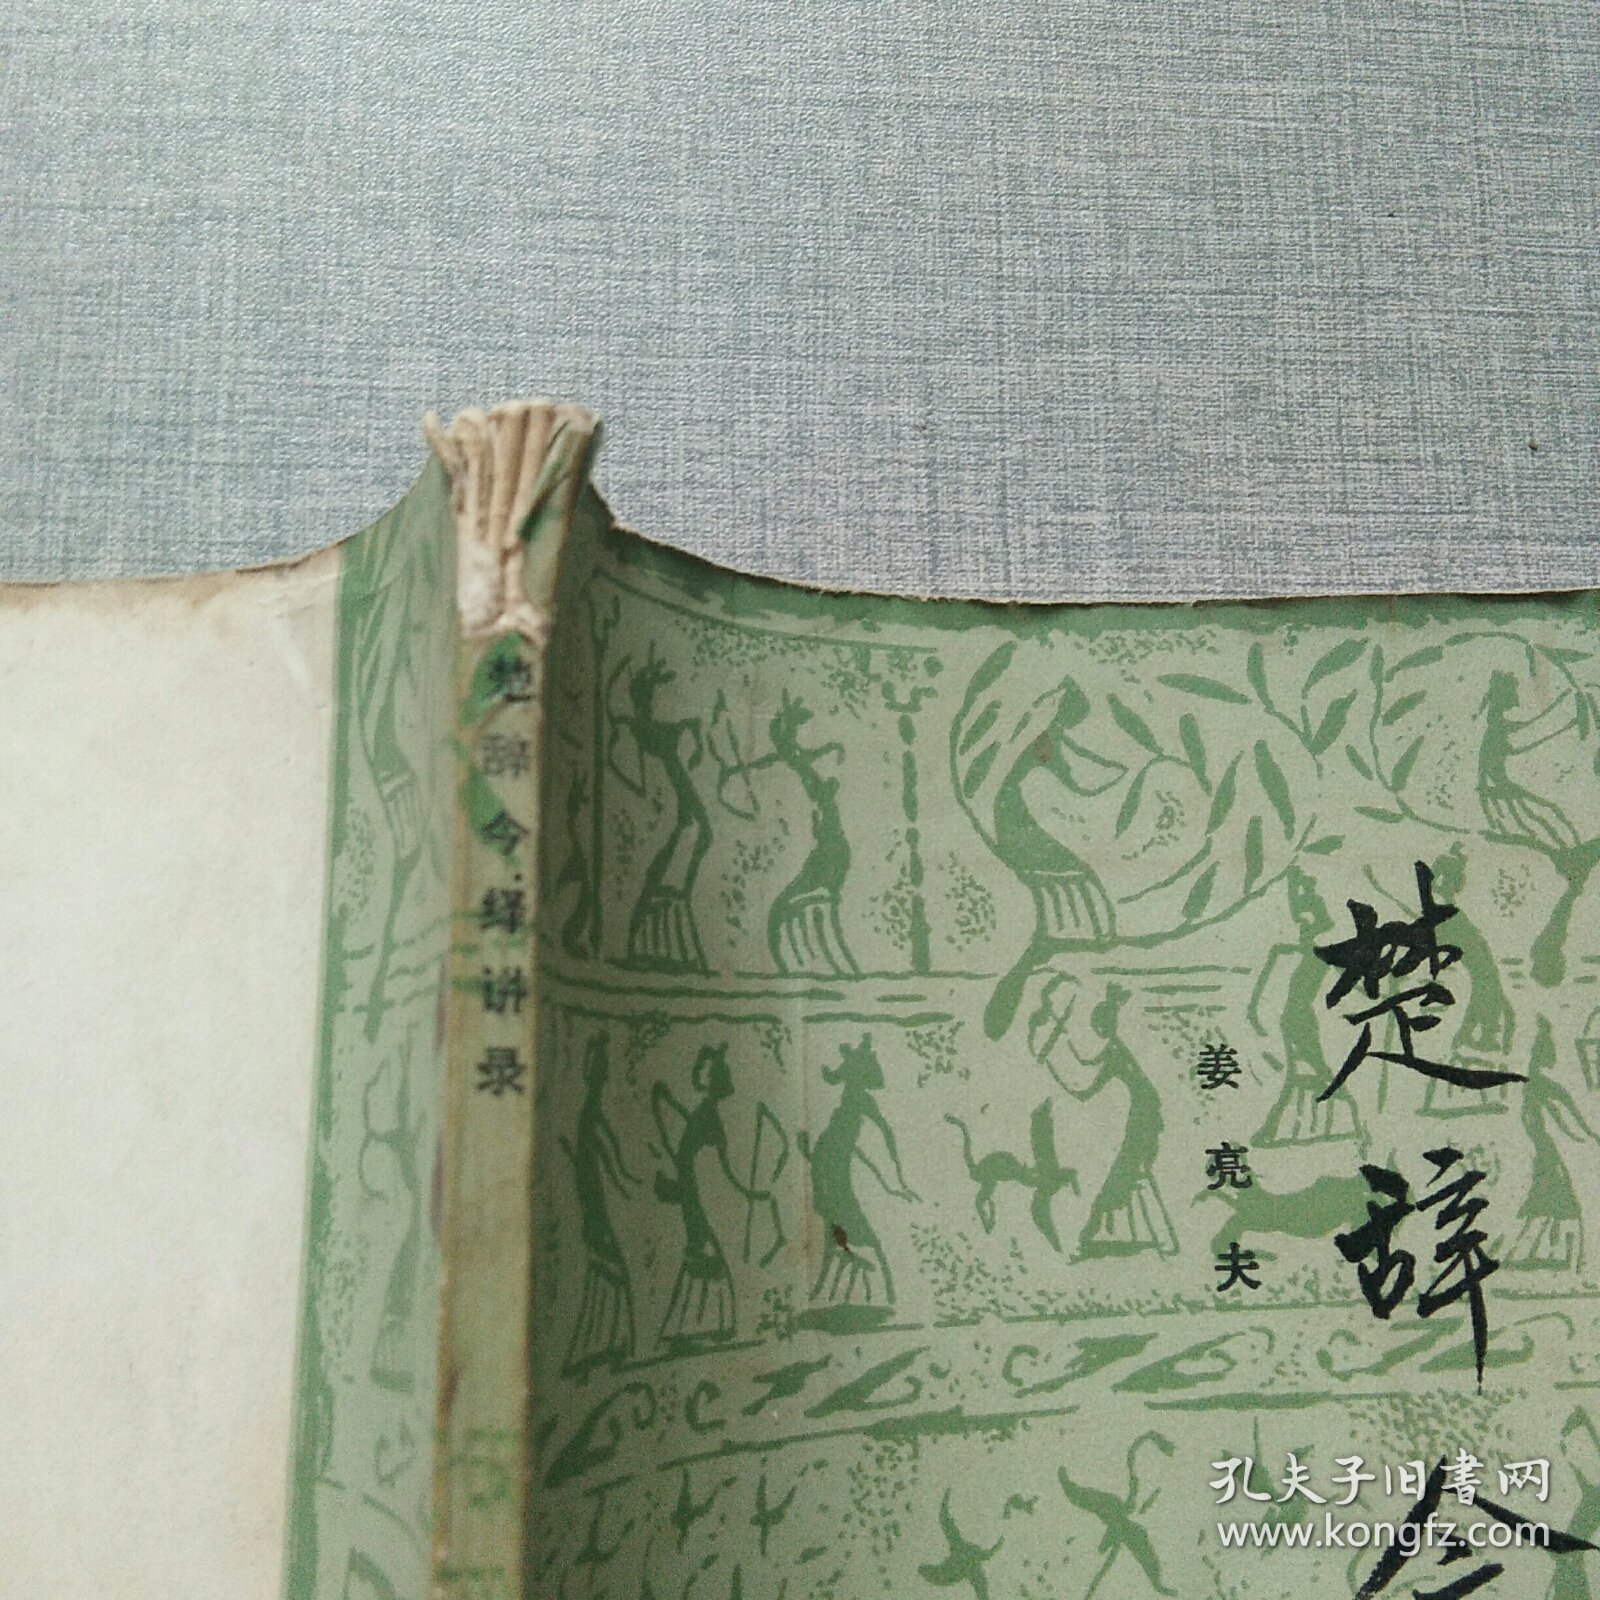 楚辞今绎讲录
楚辞今
姜亮夫
孔夫子旧书网
www.kongfz.com